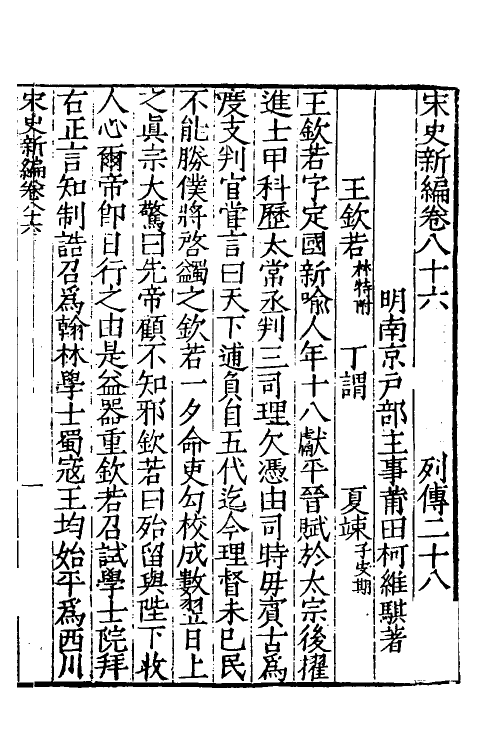 宋史新編卷八十六　列傳二十八
明南京戸部主事莆田柯維騏著
王欽若林特附　丁謂　夏竦子安期
王欽若字定國新喻人年十八獻平晉賦於太宗後擢
進士甲科歷太常丞判三司理欠憑由司時毋賓古爲
度支判官嘗言曰天下逋負自五代迄今理督未已民
不能勝僕將啓蠲之欽若一夕命吏勾校成數翌日上
之眞宗大驚曰先帝顧不知邪欽若曰殆留與陛下收
人心爾帝卽日行之由是益器重欽若召試學士院拜
右正言知制誥召爲翰林學士蜀寇王均始平爲西川
宋史新編卷八十六　一